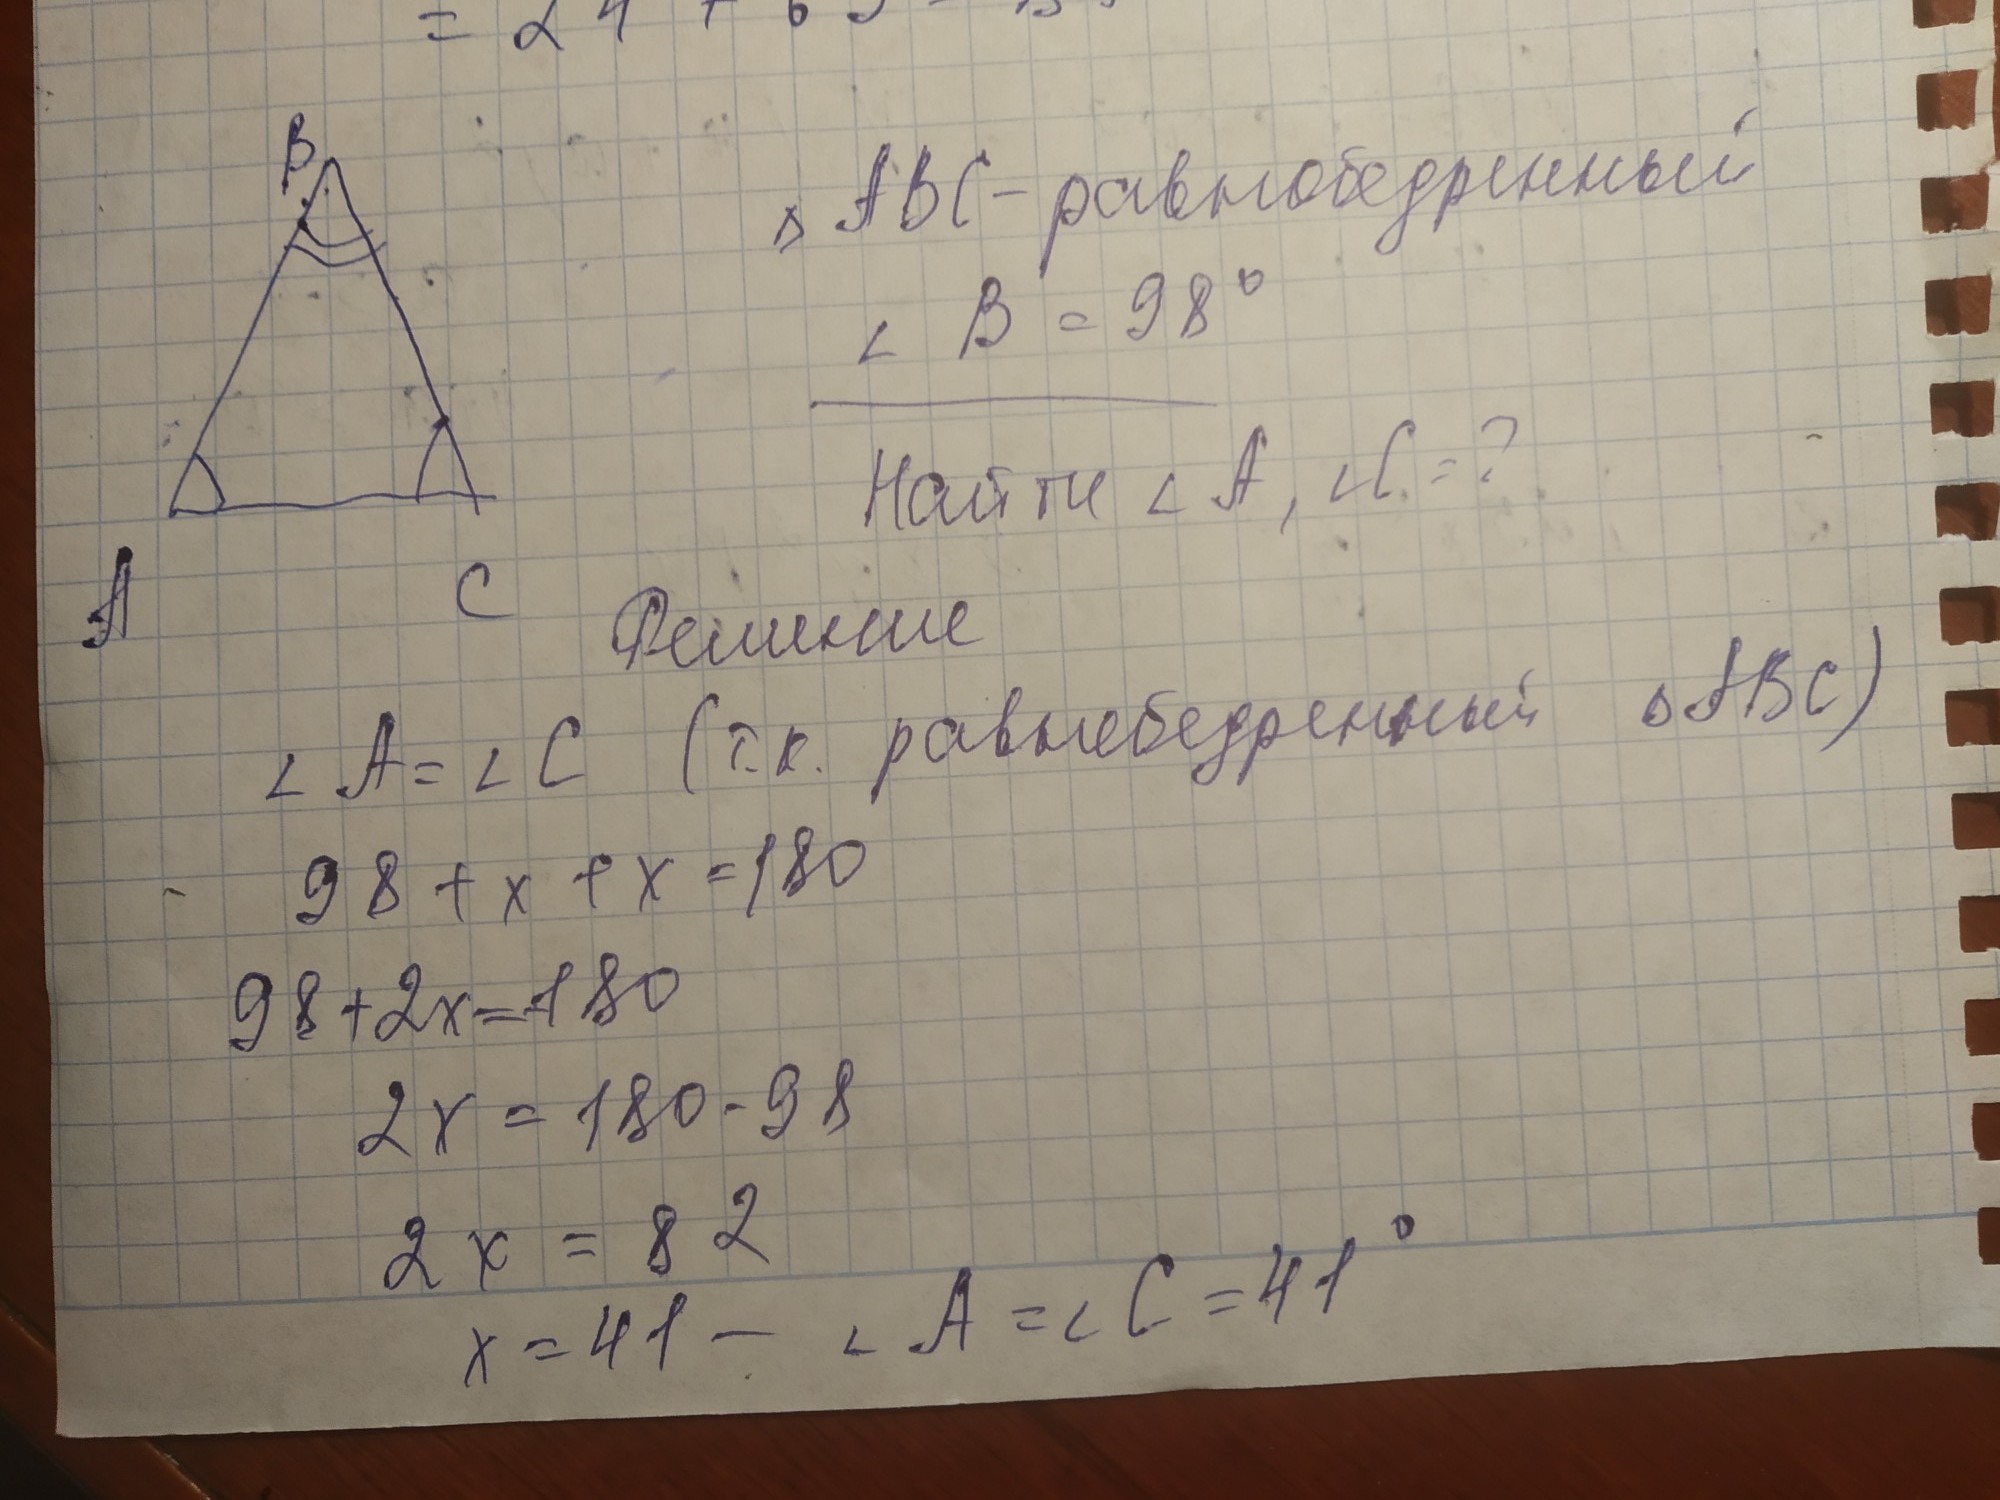 B
△ ABC - равнобедренный
∠ B = 98°
Найти ∠ A, ∠C = ?
A
C
Решение
∠ A = ∠ C (т.к. равнобедренный △ ABC)
98 + x + x = 180
98 + 2x = 180
2x = 180 - 98
2x = 82
x = 41 - ∠ A = ∠ C = 41°